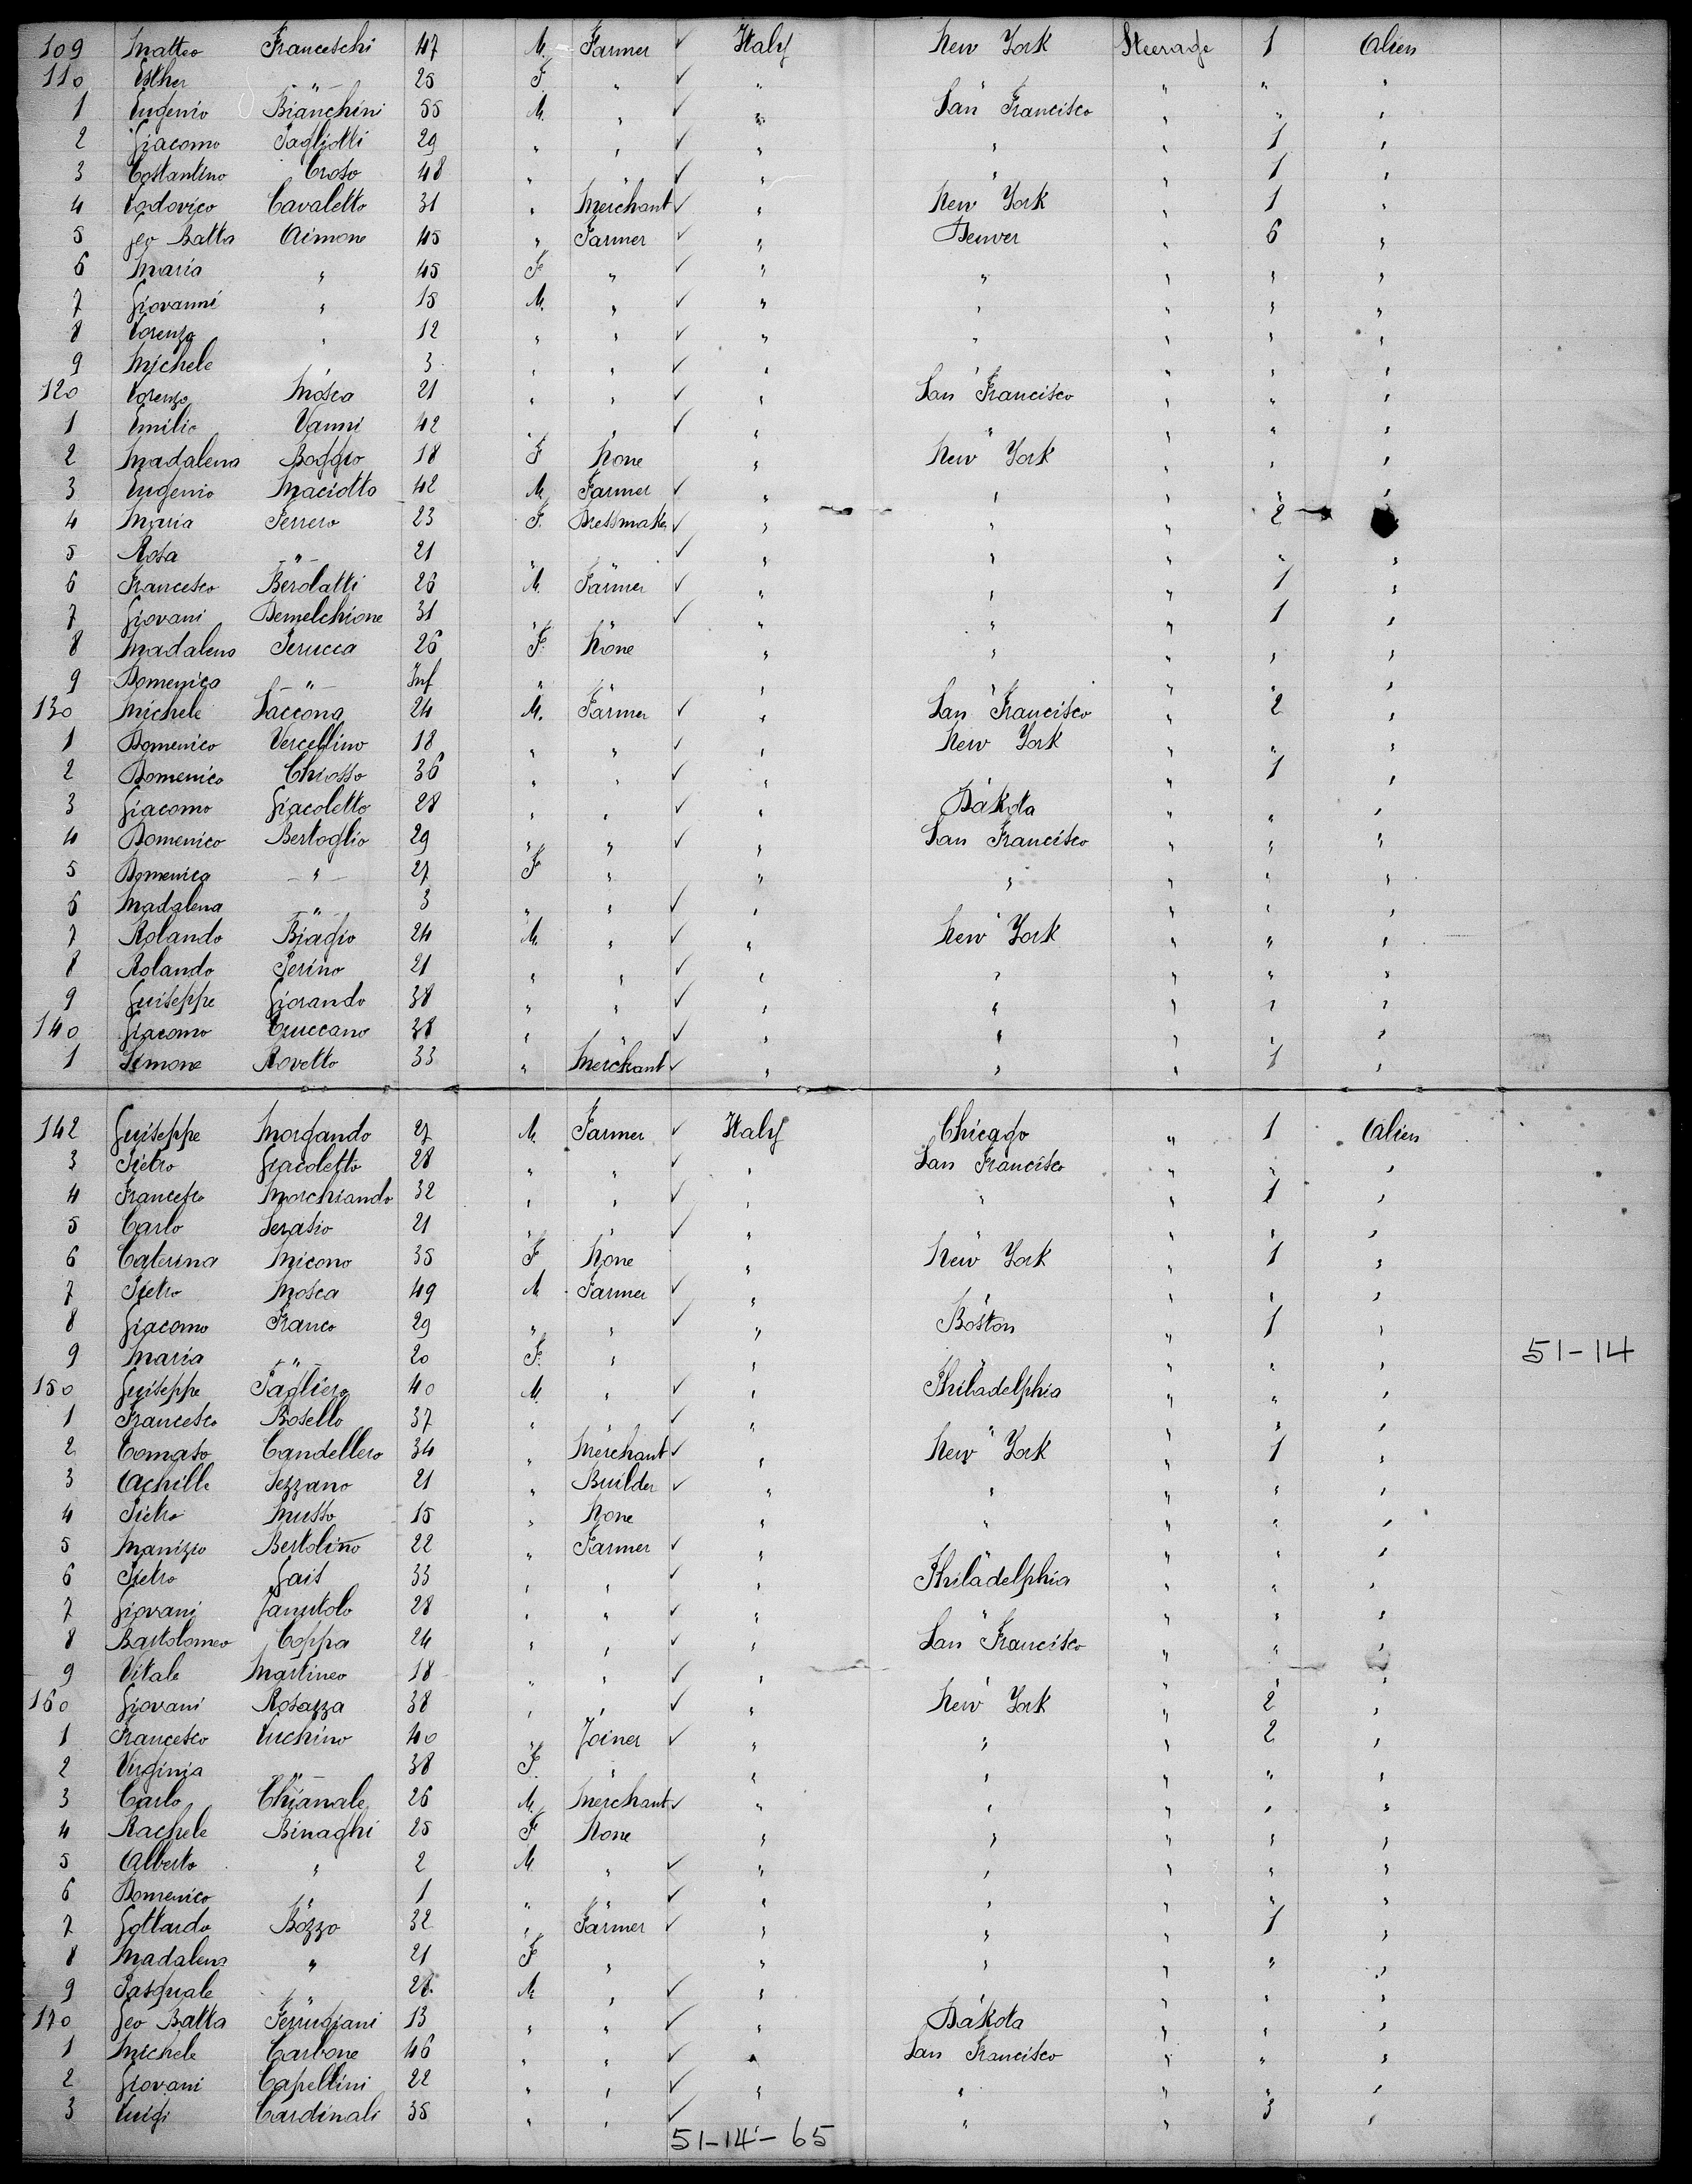 109 Matteo Franceschi 47 M. Farmer ✓ Italy New York Steerage 1 Alien
110 Esther " 25 F " ✓ " " " " "
1 Eugenio Bianchini 55 M. " ✓ " San Francisco " " "
2 Giacomo Pagliotti 29 " " ✓ " " " 1 "
3 Costantino Croso 48 " " ✓ " " " 1 "
4 Lodovico Cavaletto 31 " Merchant ✓ " New York " 1 "
5 Geo Batta Aimone 45 " Farmer ✓ " Denver " 6 "
6 Maria " 45 F " ✓ " " " " "
7 Giovanni " 15 M. " ✓ " " " " "
8 Lorenzo " 12 " " ✓ " " " " "
9 Michele " 3 " " ✓ " " " " "
120 Lorenzo Mosca 21 " " ✓ " San Francisco " " "
1 Emilio Vanni 42 " " ✓ " " " " "
2 Madalena Boggio 18 F None " New York " " "
3 Eugenio Maciotto 42 M. Farmer ✓ " " " " "
4 Maria Ferrero 23 F. Dressmaker ✓ " " " 2
5 Rosa " 21 " " ✓ " " " " "
6 Francesco Berolatti 26 M. Farmer ✓ " " " 1 "
7 Giovani Demelchione 31 " " ✓ " " " 1 "
8 Madalena Perucca 26 F. None " " " " "
9 Domenica " Inf " " " " " " "
130 Michele Saccona 24 M. Farmer ✓ " San Francisco " 2 "
1 Domenico Vercellino 18 " " ✓ " New York " " "
2 Domenico Chiosso 36 " " ✓ " " " 1 "
3 Giacomo Giacoletto 28 " " ✓ " Dakota " " "
4 Domenico Bertoglio 29 " " ✓ " San Francisco " " "
5 Domenica " 27 F " " " " " "
6 Madalena " 3 " " ✓ " " " " "
7 Rolando Biagio 24 M. " ✓ " New York " " "
8 Rolando Perino 21 " " ✓ " " " " "
9 Guiseppe Giorando 38 " " ✓ " " " " "
140 Giacomo Cruccano 38 " " ✓ " " " " "
1 Simone Rovetto 33 " Merchant ✓ " " " 1 "
142 Guiseppe Morgando 27 M. Farmer ✓ Italy Chicago " 1 Alien
3 Pietro Giacoletto 28 " " ✓ " San Francisco " " "
4 Francesco Marchiando 32 " " ✓ " " " 1 "
5 Carlo Serasio 21 " " ✓ " " " " "
6 Caterina Micono 35 F None " New York " 1 "
7 Pietro Mosca 49 M Farmer ✓ " " " " "
8 Giacomo Franco 29 " " ✓ " Boston " 1 "
9 Maria " 20 F. " " " " " " 51-14
150 Guiseppe Pagliero 40 M. " ✓ " Philadelphia " " "
1 Francesco Bosello 37 " " ✓ " " " " "
2 Tomaso Candellero 34 " Merchant ✓ " New York " 1 "
3 Achille Pezzano 21 " Builder ✓ " " " " "
4 Pietro Musso 15 " None " " " " "
5 Manizio Bertolino 22 " Farmer ✓ " " " " "
6 Pietro Gait 33 " " ✓ " Philadelphia " " "
7 Giovani Janutolo 28 " " ✓ " " " " "
8 Bartolomeo Coppa 24 " " ✓ " San Francisco " " "
9 Vitale Martineo 18 " " ✓ " " " " "
160 Giovani Rosazza 38 " " ✓ " New York " 2 "
1 Francesco Luchino 40 " Joiner ✓ " " " 2 "
2 Virginia " 38 F. " " " " " "
3 Carlo Chianale 26 M. Merchant ✓ " " " " "
4 Rachele Binaghi 25 F None " " " " "
5 Alberto " 2 M " ✓ " " " " "
6 Domenico " 1 " " ✓ " " " " "
7 Gottardo Bozzo 32 " Farmer ✓ " " " 1 "
8 Madalena " 21 F " " " " " "
9 Pasquale " 28. M " ✓ " " " " "
170 Geo Batta Perrugiani 13 " " ✓ " Dakota " " "
1 Michele Carbone 46 " " ✓ " San Francisco " " "
2 Giovani Capellini 22 " " ✓ " " " " "
3 Luigi Cardinali 35 " " ✓ " " " 3 "
51-14-65